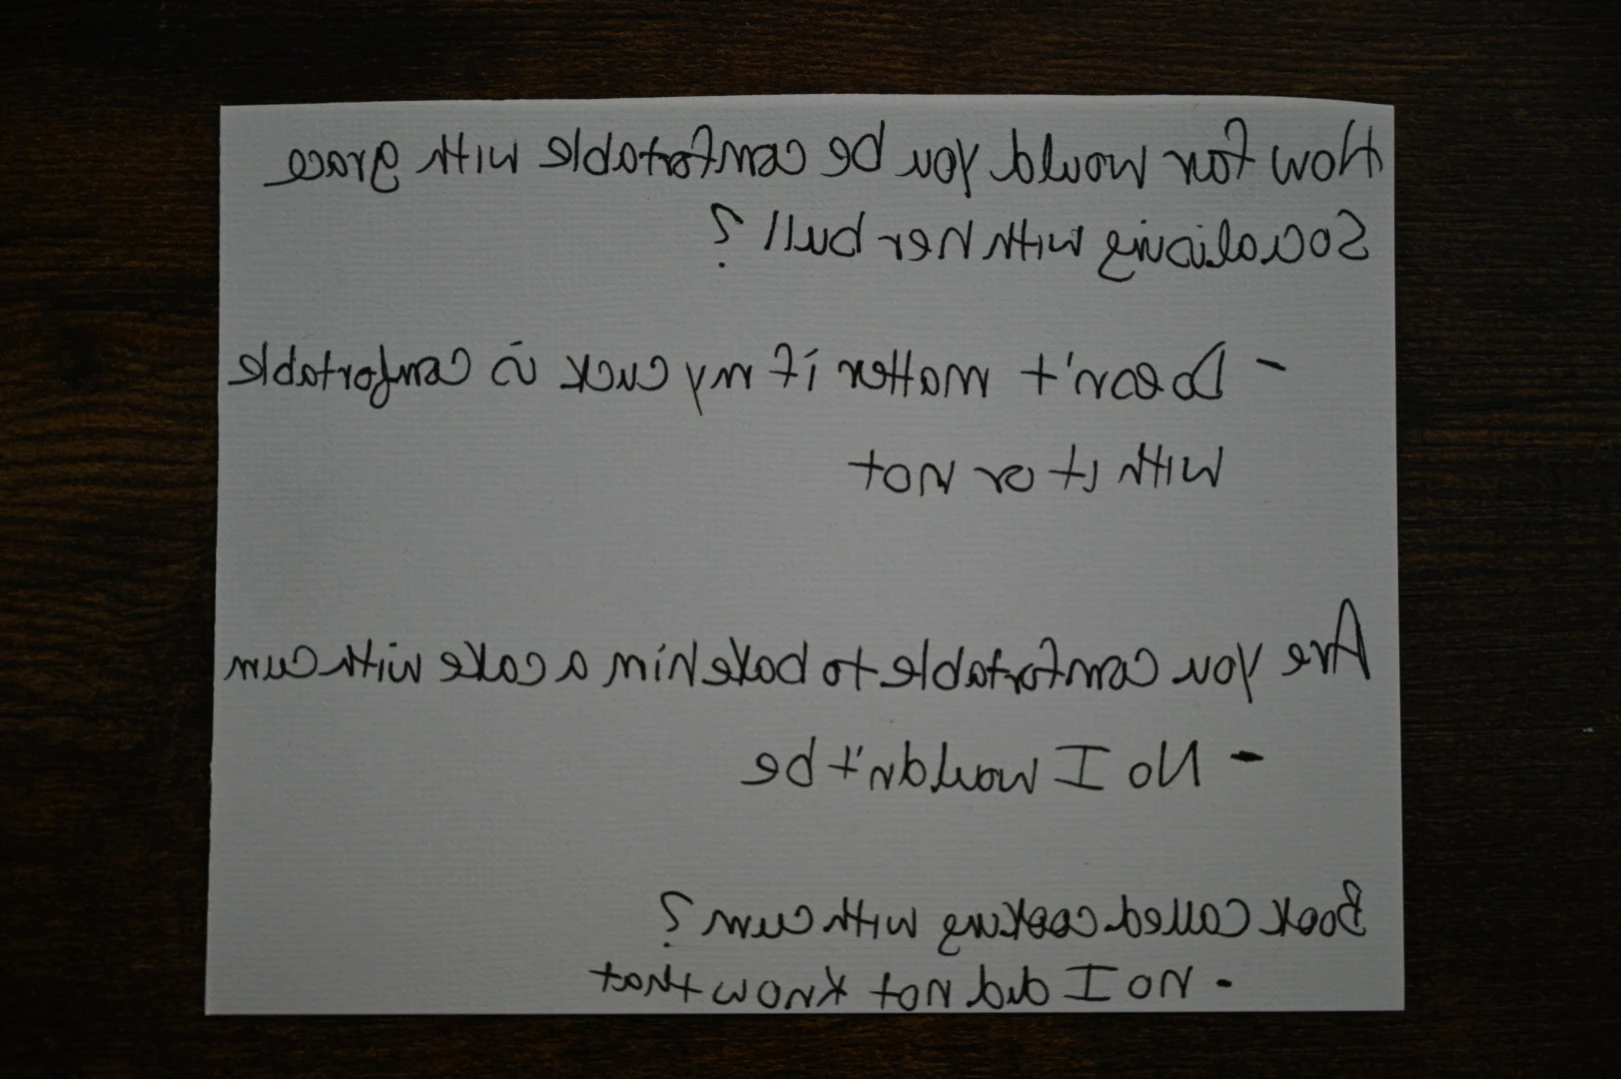 How far would you be comfortable with grace
Socializing with her bull?
- Doesn't matter if my cuck is comfortable
with it or not
Are you comfortable to bake him a cake with cum
- No I wouldn't be
Book called cooking with cum?
- No I did not know that